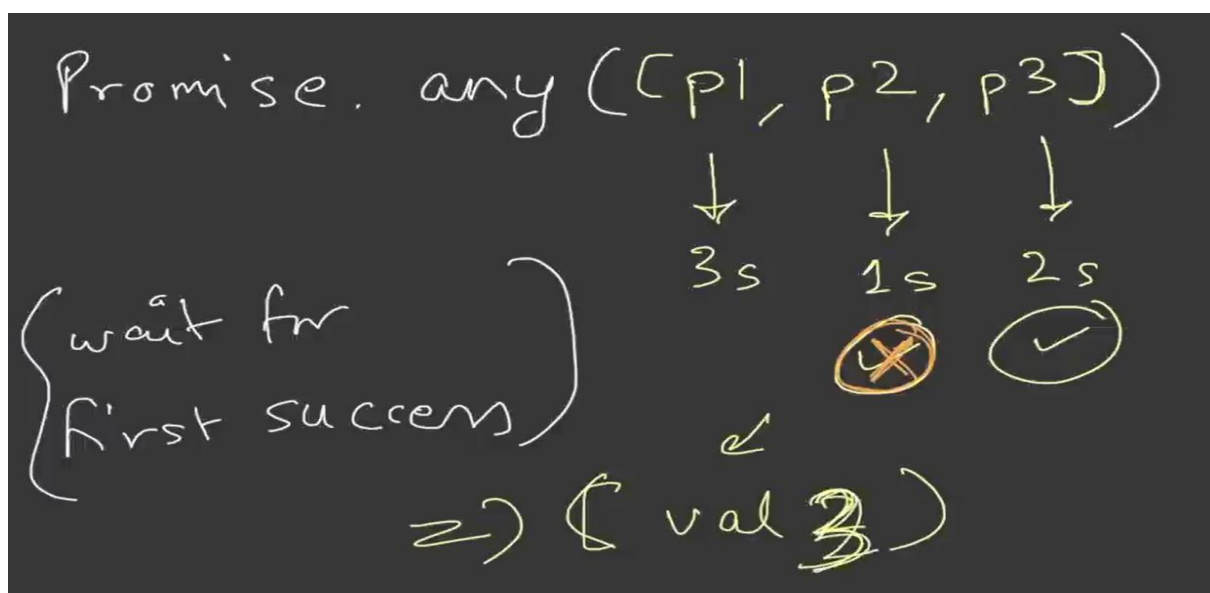 Promise. any ([p1, p2, p3])
3s 1s 2s
wait for
first success
=> ( val 3 )